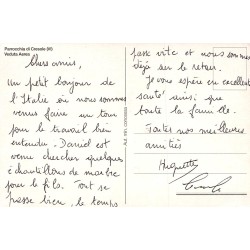 Parrocchia di Cresole (VI)
Veduta Aerea
Chers amis,
Un petit bonjour de
l'Italie où nous sommes
venus faire un tour
pour le travail bien
entendu. Daniel est
venu chercher quelques
échantillons de marbre
pour le fils. Tout se
passe bien, le temps
passe vite et nous sommes
déjà sur le retour.
Je vous espère en excellente
santé ainsi que
toute la famille.
Toutes nos meilleures
amitiés
Huguette